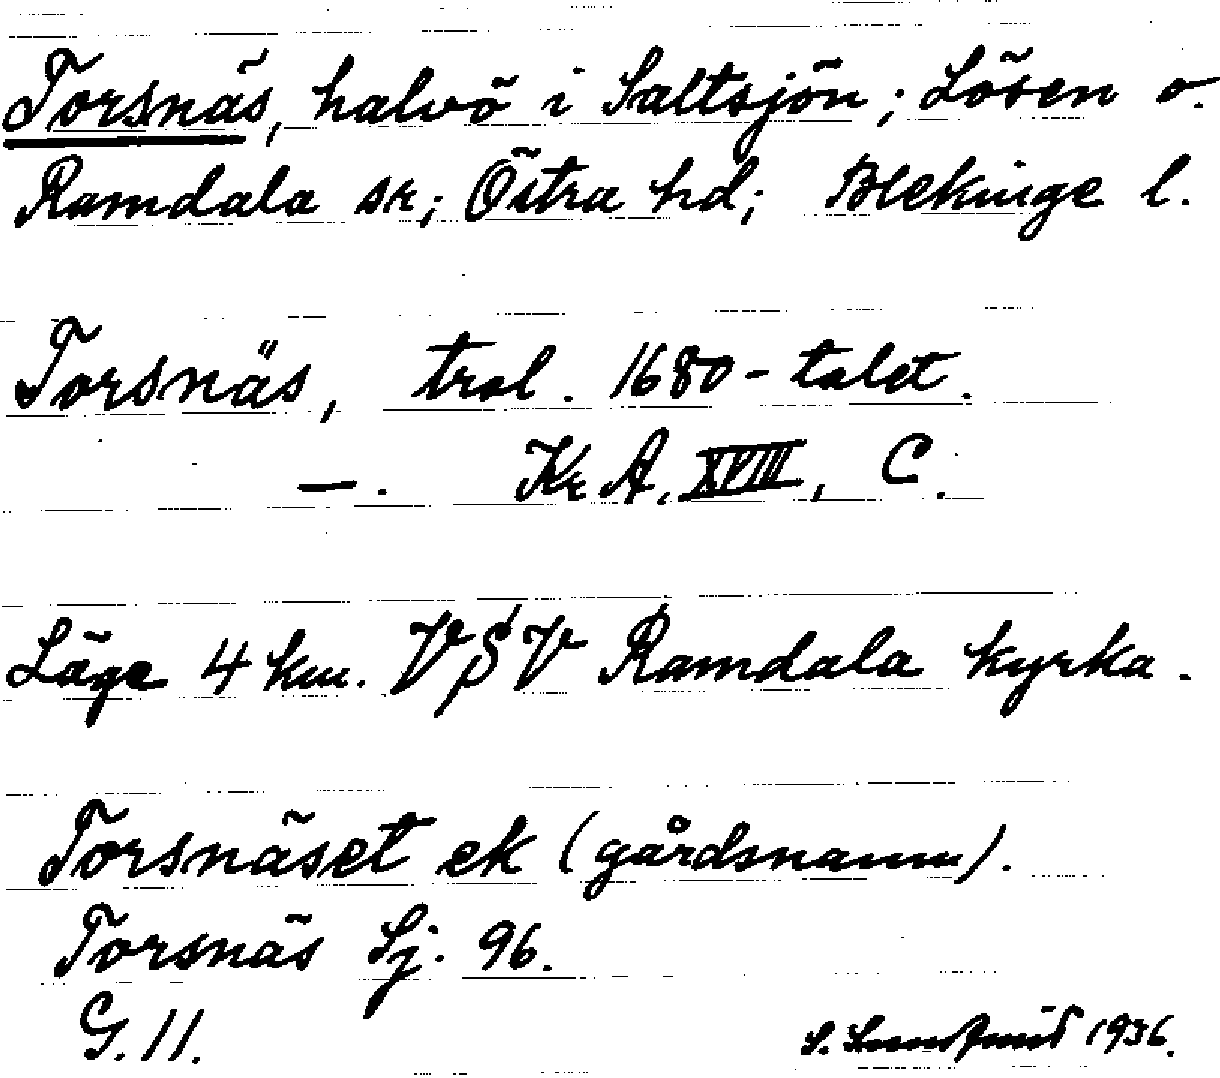 Torsnäs, halvö i Saltsjön; Lösen o.
Ramdala sn; Östra hd; Blekinge l.
Torsnäs, trol. 1680-talet.
—. Kr A. XVIII, C.
Läge 4 km. VSV Ramdala kyrka.
Torsnäset ek (gårdsnamn).
Torsnäs Sj. 96.
G. 11.
S. 1936.